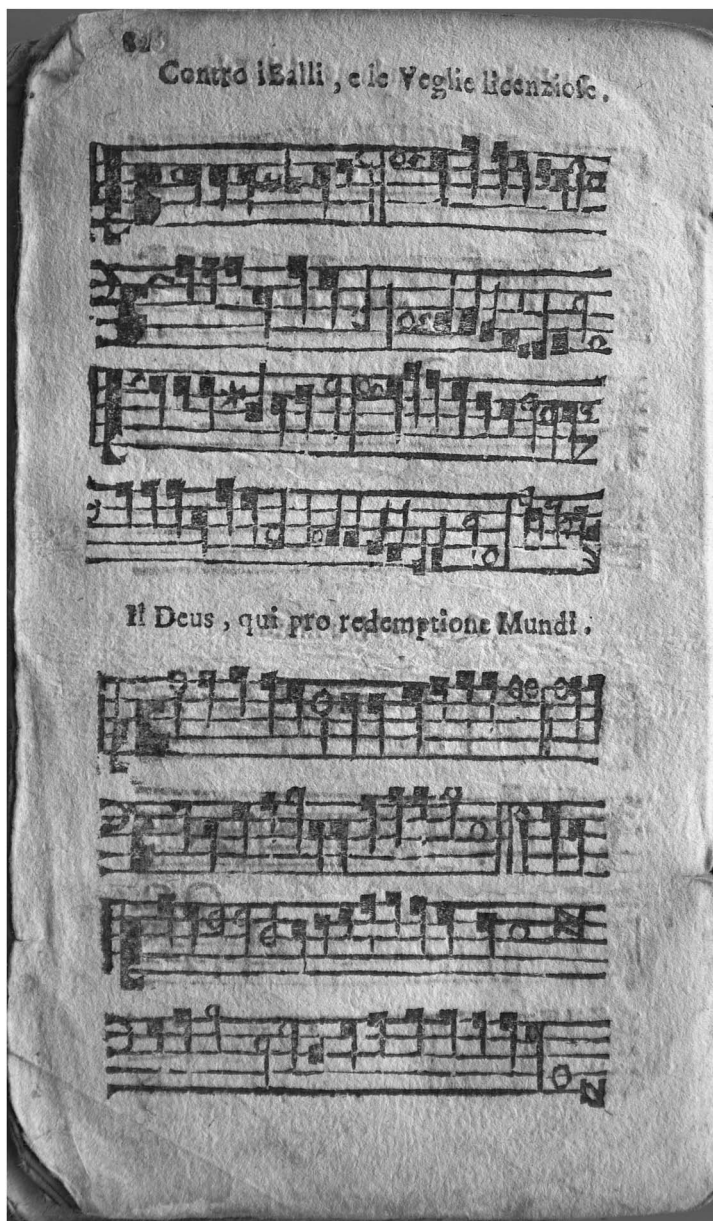 Contro i Balli, e le Veglie licenziose.
Il Deus, qui pro redemptione Mundi.